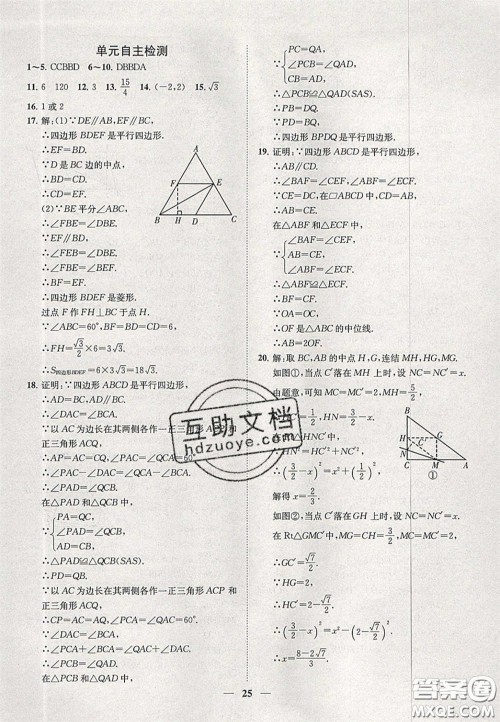 单元自主检测
1～5. CCBBD　6～10. DBBDA
11. 6　120　12. 3　13. 15/4　14. (-2,2)　15. √3
16. 1或2
17. 解:(1)∵DE∥AB,EF∥BC,
∴四边形 BDEF 是平行四边形.
∴EF=BD.
∵D 是 BC 边的中点,
∴BD=CD.
∴CD=EF.
(2)∵BE 平分∠ABC,
∴∠FBE=∠DBE.
∵EF∥BD,
∴∠DBE=∠BEF.
∴∠FBE=∠BEF.
∴BF=EF.
∴四边形 BDEF 是菱形.
过点 F 作 FH⊥BC 于点 H.
∵∠ABC=60°,BF=CD=6,
∴FH=√3/2×6=3√3.
∴S四边形BDEF=6×3√3=18√3.
18. 证明:∵四边形 ABCD 是平行四边形,
∴AD=BC,AD∥BC.
∴∠DAC=∠BCA.
∵以 AC 为边长在其两侧各作一正三角形 ACP 和
正三角形 ACQ,
∴AP=AC=CQ,∠PAC=∠QCA=60°.
∴∠PAC-∠DAC=∠QCA-∠BCA.
∴∠PAD=∠QCB.
在△PAD 和△QCB 中,
PA=QC,
∵ ∠PAD=∠QCB,
AD=CB,
∴△PAD≌△QCB(SAS).
∴PD=QB.
∵以 AC 为边长在其两侧各作一正三角形 ACP 和
正三角形 ACQ,
∴CP=AC=AQ,∠PCA=∠QAC=60°.
∵∠DAC=∠BCA,
∴∠PCA+∠BCA=∠QAC+∠DAC.
∴∠PCB=∠QAD.
在△PCB 和△QAD 中,
PC=QA,
∵ ∠PCB=∠QAD,
BC=DA,
∴△PCB≌△QAD(SAS).
∴PB=DQ.
∵PD=QB,
∴四边形 BPDQ 是平行四边形.
19. 证明:∵四边形 ABCD 是平行四边形,
∴AB=CD.
∵CE=DC,在▱ABCD 中,AB∥CD,
∴AB=CE.
∴∠BAF=∠CEF,∠ABF=∠ECF.
在△ABF 和△ECF 中,
∠BAF=∠CEF,
∵ AB=CE,
∠ABF=∠ECF,
∴△ABF≌△ECF(ASA).
∴BF=CF.
∵OA=OC,
∴OF 是△ABC 的中位线.
∴AB=2OF.
20. 解:取 BC,AB 的中点 H,G,连结 MH,MG.
如图①,当点 C′落在 MH 上时,设 NC=NC′=x,
由题意,可知 MC=MC′=2,MH=5/2,
HC′=1/2,HN=3/2-x.
∴HN²=HC′²+NC′².
∴(3/2-x)²=x²+(1/2)².
解得 x=2/3.
如图②,当点 C′落在 GH 上时,设 NC=NC′=x.
在 Rt△GMC′中,MG=CH=3/2,MC=MC′=2,
∴GC′=√7/2.
∵HG=2,
∴HC′=2-√7/2.
∴(3/2-x)²+(2-√7/2)²=x².
∴x=(8-2√7)/3.
A
F
E
B
H
D
C
B
H
G
N
C′
C
M
A
①
互助文档
hdzuoye.com
25
答案圈
MXQE.COM